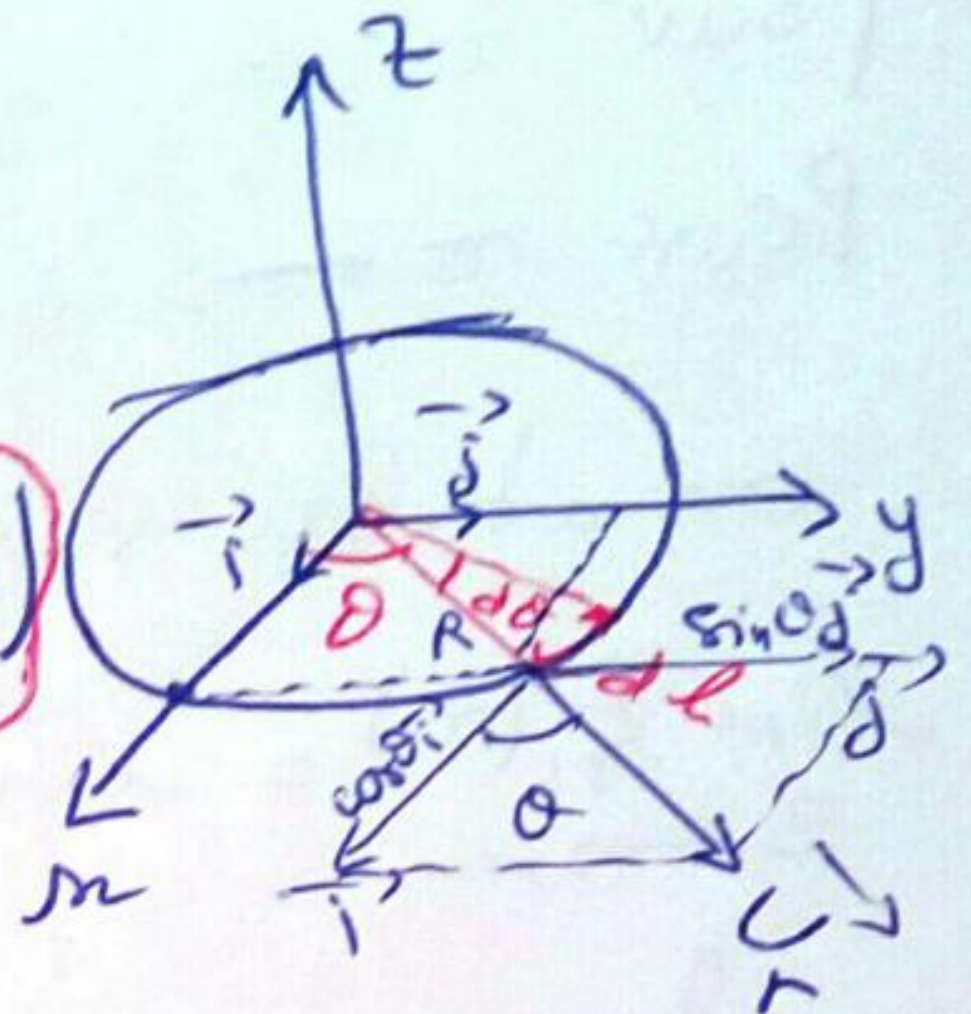 z
j
i
y
θ
dθ
R
sinθ j
dl
j
cosθ i
θ
i
x
U
r